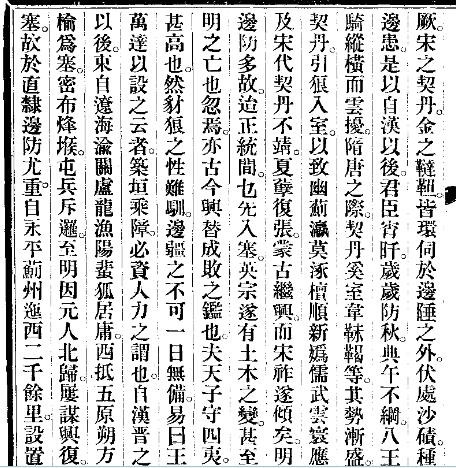 厥。宋之契丹。金之韃靼。皆環伺於邊陲之外。伏處沙磧。種
邊患。是以自漢以後。君臣宵旰。歲歲防秋。典午不綱。八王
騎縱橫而雲擾。隋唐之際。契丹奚室韋靺鞨等。其勢漸盛。
契丹。引狼入室。以致幽薊瀛莫涿檀順新嬀儒武雲寰應
及宋代契丹不靖。夏孽復張。蒙古繼興。而宋祚遂傾矣。明
邊防多故。迨正統間。乜先入塞。英宗遂有土木之變。甚至
明之亡也忽焉。亦古今興替成敗之鑑也。夫天子守四夷。
甚高也。然豺狼之性難馴。邊疆之不可一日無備。易曰王
萬達以設之云者。築垣乘障。必資人力之謂也。自漢晉之
以後。東自遼海渝關盧龍漁陽蜚狐居庸。西抵五原朔方
榆爲塞。密布烽堠。屯兵斥邏。至明因元人北歸。屢謀興復。
塞。故於直隸邊防尤重。自永平薊州迤西二千餘里。設置